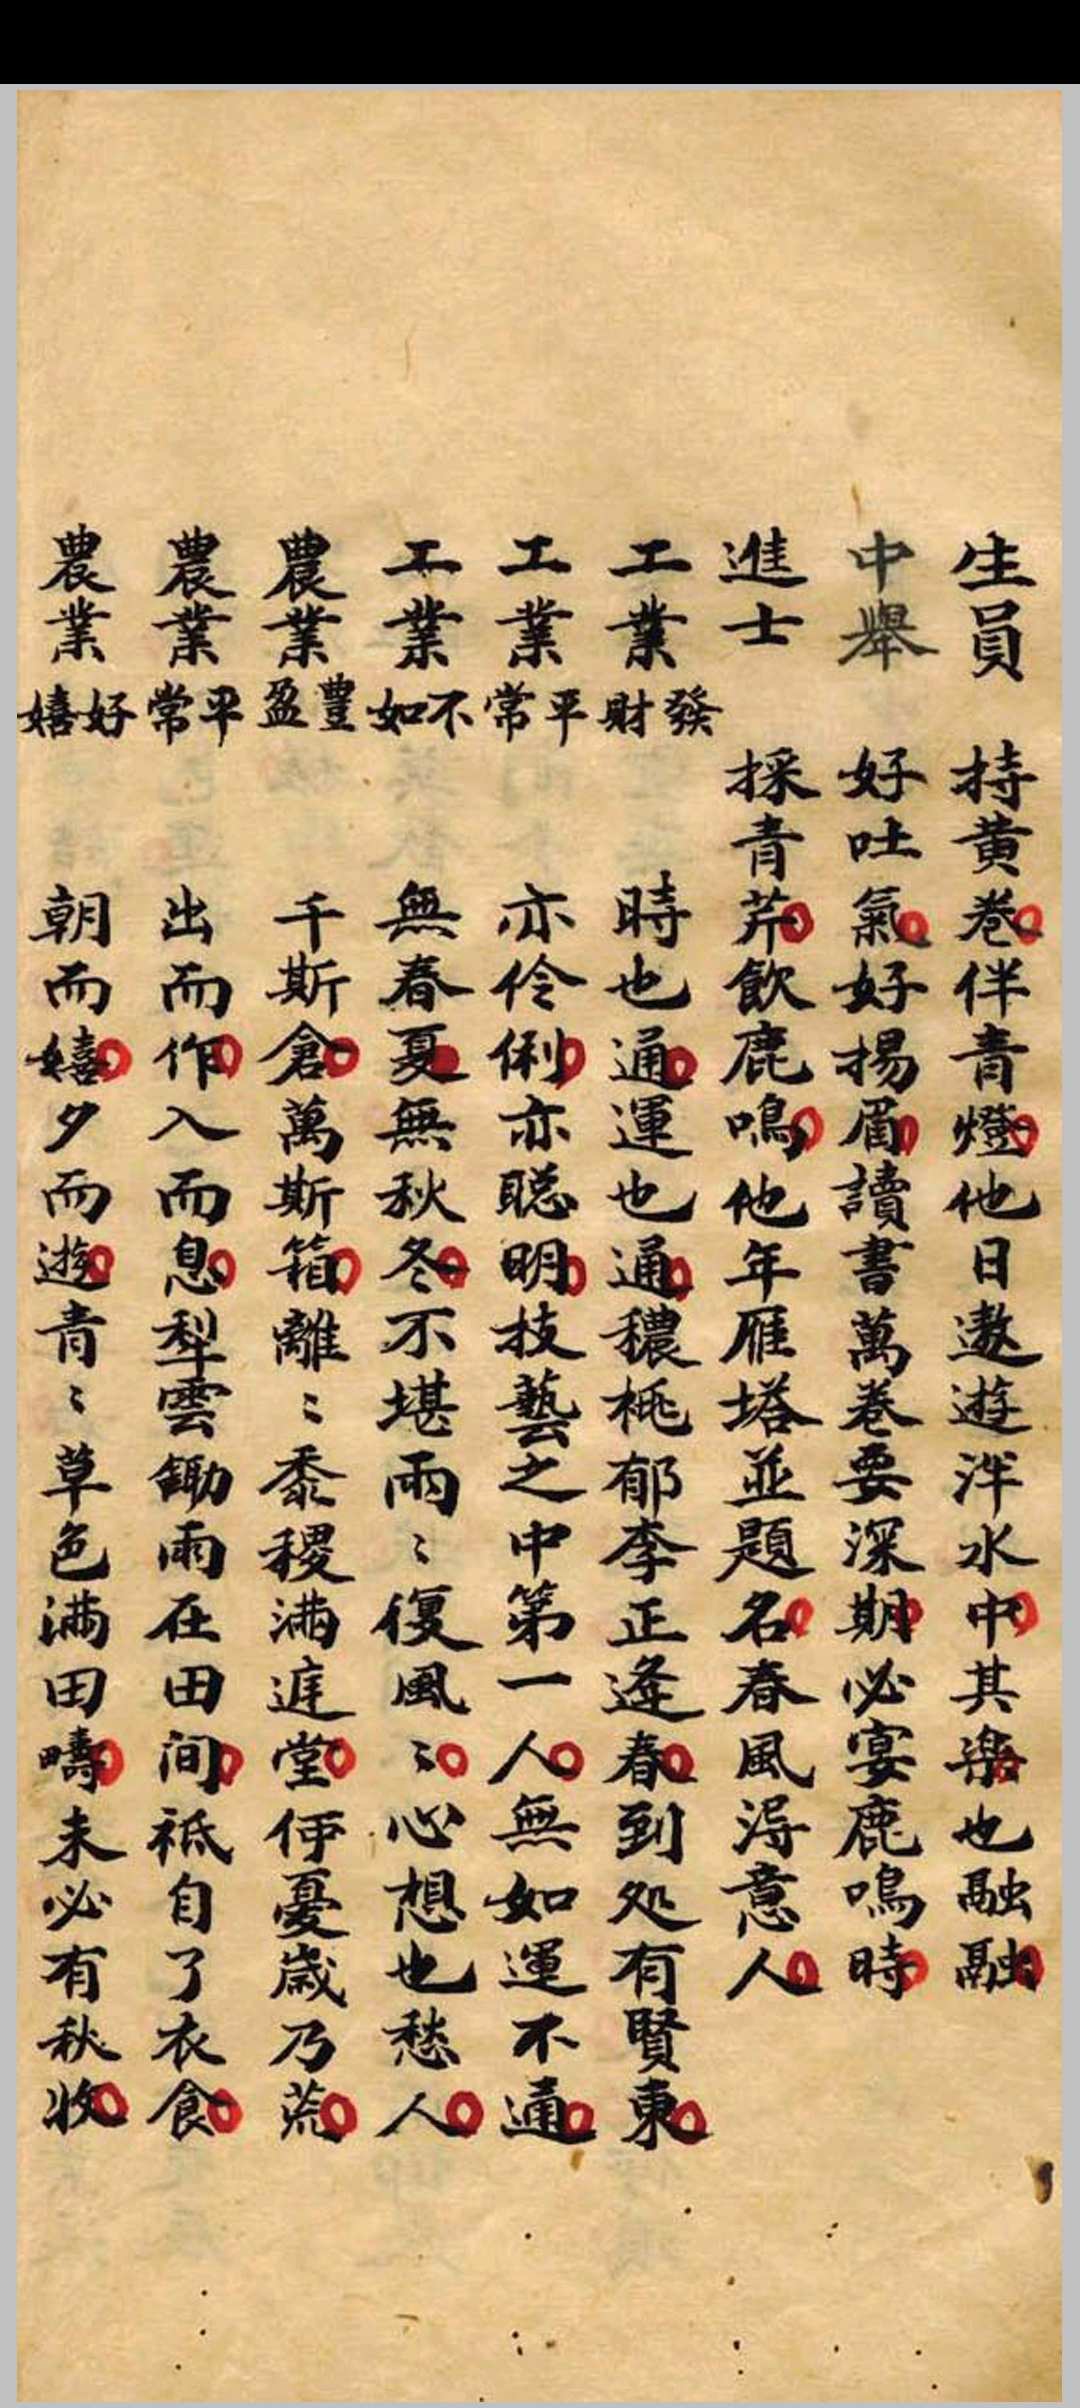 生員 持黃卷伴青燈他日遨遊泮水中其樂也融融
中舉 好吐氣好揚眉讀書萬卷要深期必宴鹿鳴時
進士 採青芹飲鹿鳴他年雁塔並題名春風得意人
工業 發財 時也通運也通穠桃郁李正逢春到処有賢東
工業 平常 亦伶俐亦聪明技藝之中第一人無如運不通
工業 不如 無春夏無秋冬不堪雨〻復風〻心想也愁人
農業 豊盈 千斯倉萬斯箱離〻黍稷滿庭堂伢憂歲乃荒
農業 平常 出而作入而息犁雲鋤雨在田间祗自了衣食
農業 好嬉 朝而嬉夕而遊青〻草色滿田疇未必有秋收